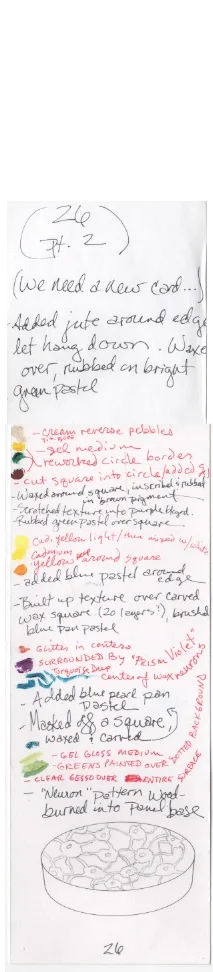 26
pt. 2
(We need a new card...)
-Added jute around edge
let hang down. Waxed
over, rubbed on bright
green pastel
- Cream reverse pebbles
- gel medium
reworked circle border
- cut square into circle/added
- Waxed around square, inscribed & rubbed
in brown pigment
- Scratched texture into purple bkgrd.
- Rubbed green pastel over square
Cad. yellow light/then mixed w/white
Cadmium
yellow around square
- added blue pastel around
edge
- Built up texture over carved
wax square (20 layers!), brushed
blue pan pastel
- Glitter in centers
SURROUNDED By "Prism Violet"
Turquoise Deep
centers of wax neurons
- Added blue pearl pan
pastel
- Masked off a square,
waxed & carved
- GEL GLOSS MEDIUM
- GREENS PAINTED OVER DOTTED BACKGROUND
- CLEAR GESSO OVER ENTIRE SURFACE
- "Neuron" pattern wood-
burned into panel base
26